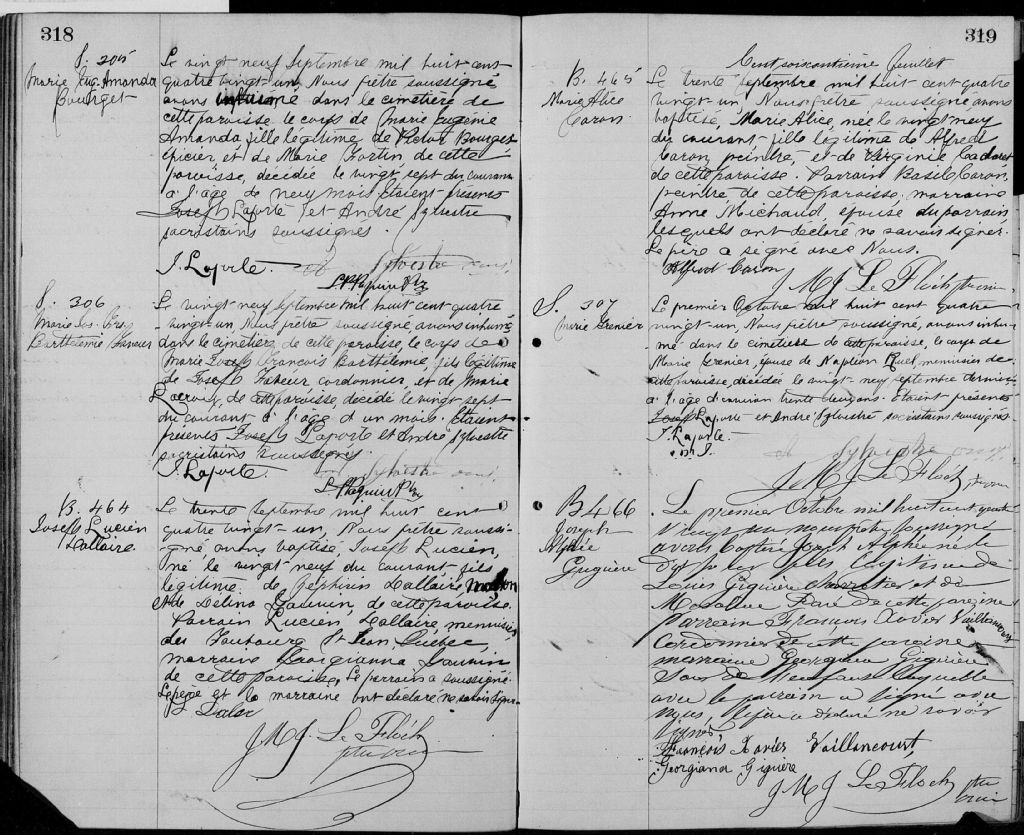 318
S. 305
Marie Eug. Amanda
Bourget
Le vingt neuf Septembre mil huit cent
quatre vingt un, Nous prêtre soussigné
avons inhumé dans le cimetière de
cette paroisse le corps de Marie Eugenie
Amanda fille légitime de Victor Bourget
épicier et de Marie Fortin, de cette
paroisse, décédée le vingt sept du courant
à l'âge de neuf mois. Etaient présents
Joseph Laporte et André Sylvestre
sacristains soussignés.
J. Laporte. Sylvestre
S. 306
Marie Jos. Frs
Barthélemie
Le vingt neuf Septembre mil huit cent quatre
vingt-un, Nous prêtre soussigné avons inhumé
dans le cimetière de cette paroisse, le corps de
Marie Joseph François Barthélemie, fils légitime
de Joseph cordonnier, et de Marie
Lacroix, de cette paroisse, décédé le vingt sept
du courant à l'âge d'un mois. Etaient
présents Joseph Laporte et André Sylvestre
sacristains soussignés.
J. Laporte. Sylvestre
B. 464
Joseph Lucien
Lallaire
Le trente Septembre mil huit cent
quatre vingt-un, Nous prêtre soussi-
gné avons baptisé, Joseph Lucien,
né le vingt neuf du courant fils
légitime de Zéphirin Lallaire,
et de Delina de cette paroisse.
Parrain Lucien Lallaire, menuisier
du Faubourg St Jean Québec,
marraine Georgianna
de cette paroisse. Le parrain a soussigné
Le père et la marraine ont déclaré ne savoir signer.
J M J Le Flôch
ptre
319
Cent soixantième feuillet
B. 465
Marie Alice
Caron.
Le trente Septembre mil huit cent quatre
vingt-un, Nous prêtre soussigné, avons
baptisé, Marie Alice, née le vingt neuf
du courant, fille légitime de Alfred
Caron, peintre, et de Virginie Cadoret
de cette paroisse. Parrain Basile Caron,
peintre de cette paroisse, marraine
Anne Michaud, épouse du parrain
lesquels ont déclaré ne savoir signer.
Le père a signé avec Nous.
Alfred Caron
J M J Le Flôch ptre
S. 307
Marie Grenier
Le premier Octobre mil huit cent quatre
vingt-un, Nous prêtre soussigné, avons inhu-
mé dans le cimetière de cette paroisse, le corps de
Marie Grenier, épouse de Napoléon Ruel, menuisier de
cette paroisse, décédée le vingt-neuf septembre dernier
à l'âge d'environ trente deux ans. Etaient présents
Joseph Laporte et André Sylvestre sacristains soussignés.
J. Laporte.
Sylvestre
J M J Le Flôch, ptre
B 466
Joseph
Alphée
Giguère
Le premier Octobre mil huit cent quatre
vingt un nous prêtre soussigné
avons baptisé Joseph Alphée né le
fils légitime de
Louis Giguère charretier et de
Madeline Paré de cette paroisse
parrain François Xavier Vaillancourt
Cordonnier de cette paroisse
marraine Georgiana Giguère
Soeur de l'enfant laquelle
avec le parrain a signé avec
nous, le père a déclaré ne savoir
signer
François Xavier Vaillancourt,
Georgiana Giguère
J M J Le Floch ptre